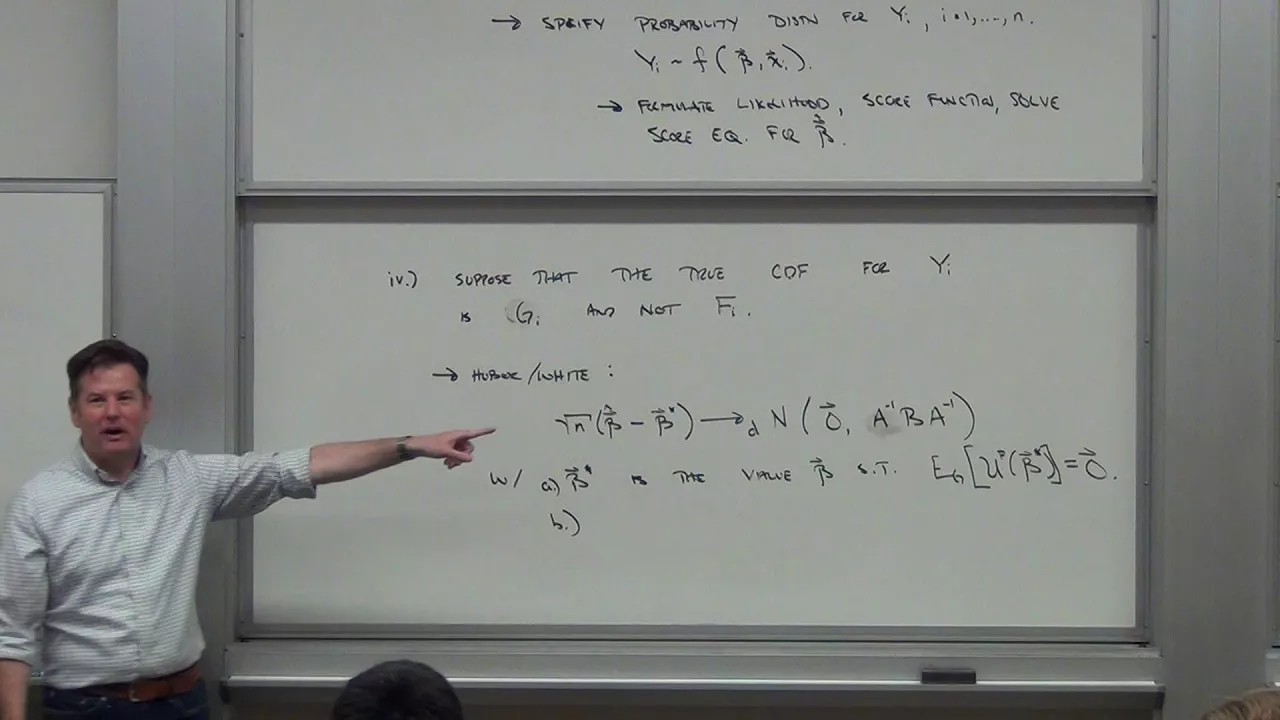 → SPECIFY PROBABILITY DISTN FOR Yᵢ, i=1,...,n.
Yᵢ ~ f(β⃗, x⃗ᵢ).
→ FORMULATE LIKELIHOOD, SCORE FUNCTION, SOLVE
SCORE EQ. FOR β⃗̂.
iv.) SUPPOSE THAT THE TRUE CDF FOR Yᵢ
IS Gᵢ AND NOT Fᵢ.
→ HUBER/WHITE:
√n(β⃗̂ - β⃗*) →d N(0⃗, A⁻¹BA⁻¹)
W/ a.) β⃗* IS THE VALUE β⃗ S.T. E_G[U⃗(β⃗*)] = 0⃗.
b.)